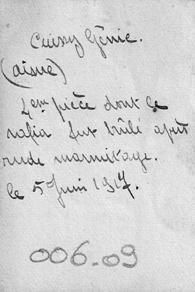 Cuissy Génie.
(aisne)
1ère pièce dont le
rafia fut brûlé après
rude marmitage.
le 5 Juin 1917.
006-09